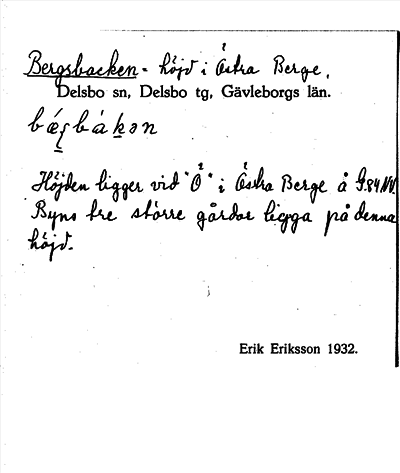 Bergsbacken - höjd i Östra Berge,
Delsbo sn, Delsbo tg, Gävleborgs län.
Höjden ligger vid "Ö" i Östra Berge å G.84 NV.
Byns tre större gårdar ligga på denna
höjd.
Erik Eriksson 1932.